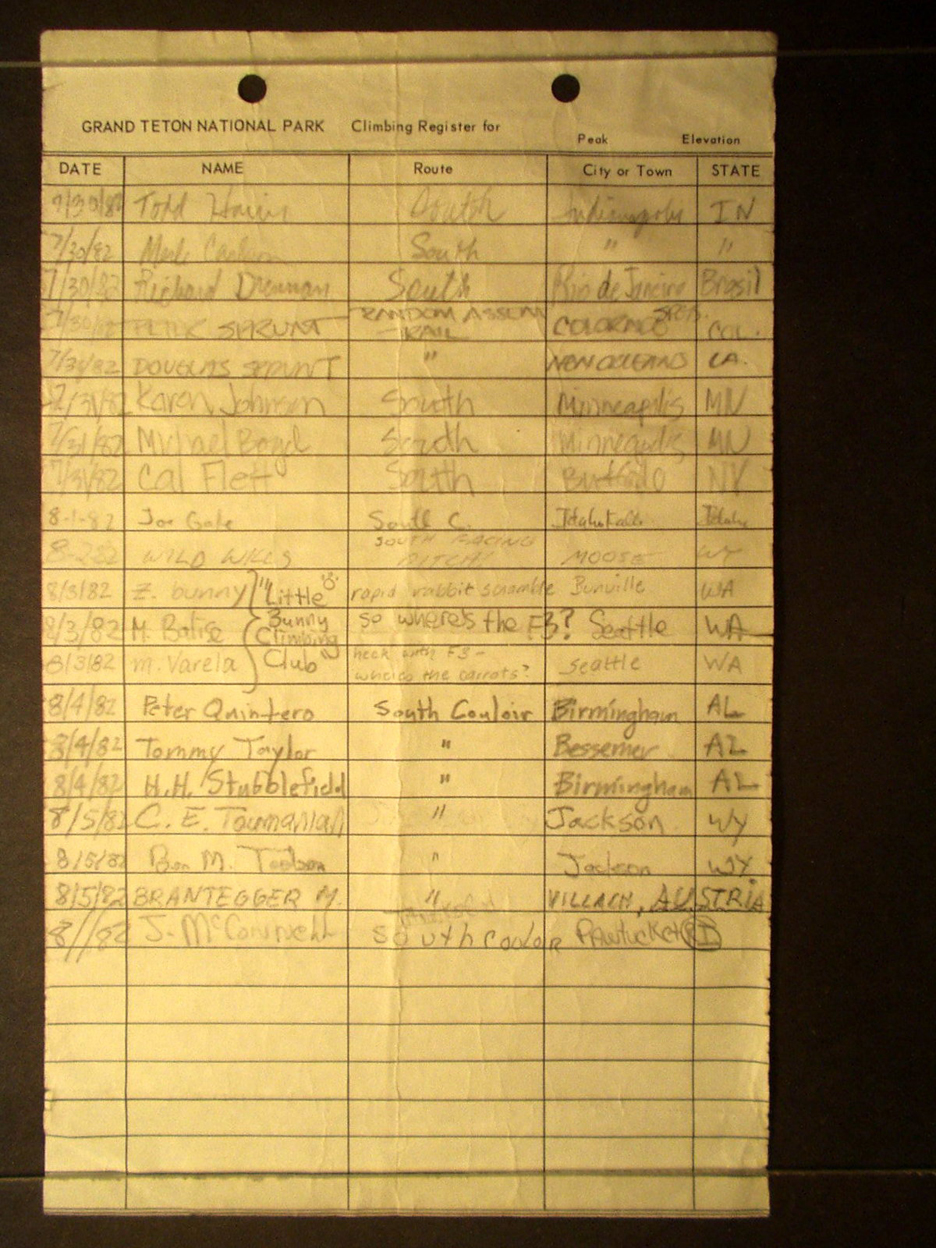 GRAND TETON NATIONAL PARK Climbing Register for
Peak Elevation
DATE NAME Route City or Town STATE
7/30/82 Todd South Indianapolis IN
7/30/82 South " "
7/30/82 Richard Drennan South Rio de Janeiro Brasil
7/30/82 PETER SPRUNT RANDOM ASSCM RAIL COLORADO SPGS. COL.
7/30/82 DOUGLAS SPRUNT " NEW ORLEANS LA.
7/31/82 Karen Johnson South Minneapolis MN
7/31/82 Michael Boyd South Minneapolis MN
7/31/82 Cal Flett South Buffalo NY
8-1-82 Joe Gale South C. Idaho Falls Idaho
8-2-82 WILD WILLS SOUTH FACING PITCH! MOOSE WY
8/3/82 Z. bunny "Little rapid rabbit scramble Bunville WA
8/3/82 M. Batise Bunny Climbing so where's the F3? Seattle WA
8/3/82 m. Varela Club heck with F3 - where's the carrots? seattle WA
8/4/82 Peter Quintero South Couloir Birmingham AL
8/4/82 Tommy Taylor " Bessemer AL
8/4/82 H.H. Stubblefield " Birmingham AL
8/5/82 C. E. Toumanian " Jackson WY
8/5/82 Ben M. Toolson " Jackson WY
8/5/82 BRANTEGGER M. " VILLACH, AUSTRIA
8/ /82 J. McConnell South Couloir Pawtucket RI